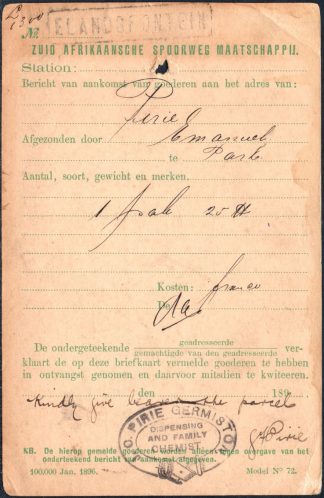 № ELANDSFONTEIN
ZUID AFRIKAANSCHE SPOORWEG MAATSCHAPPIJ.
Station:
Bericht van aankomst van goederen aan het adres van:
Pirie
Afgezonden door Emanuel
te Park
Aantal, soort, gewicht en merken.
1 25 ℔
Kosten: franco
De
De ondergeteekende geadresseerde
gemachtigde van den geadresseerde ver-
klaart de op deze briefkaart vermelde goederen te hebben
in ontvangst genomen en daarvoor mitsdien te kwiteeren.
den 189
Kindly give bearer the parcel
G. PIRIE GERMISTON
DISPENSING
AND FAMILY
CHEMIST
G Pirie
NB. De hierop gemelde goederen worden alleen tegen overgave van het
onderteekend bericht van aankomst afgegeven.
100,000 Jan. 1896. Model Nº 72.